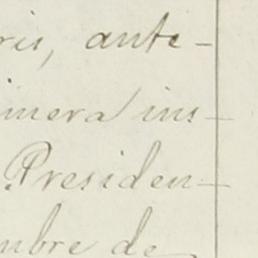 ris, ante-
imera ins-
Presiden-
mbre de